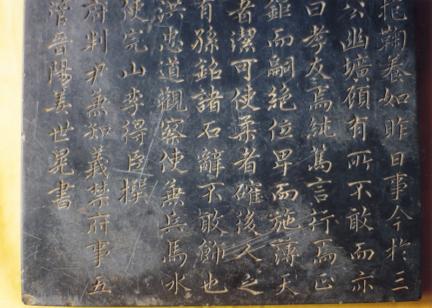 拖鞠養如昨日事今於三
公幽壙顧有所不敢而亦
曰孝友焉純篤言行焉正
鉅而嗣絶位卑而施薄天
者潔可使柔者確後人之
有孫銘諸石辭不敢飾也
洪忠道觀察使兼兵馬水
使完山李得臣撰
府判尹兼知義禁府事五
管晉陽姜世晃書